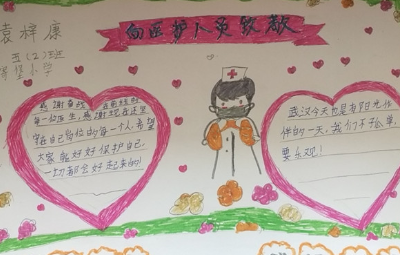 向医护人员致敬
袁梓康
五(2)班
小学
感谢
每一位医生,感谢现在还
自己岗位的每一个人,希望
大家能好好保护自己
一切都会好起来的!
武汉今天也是有阳光作
伴的一天,我们不孤单,
要乐观!